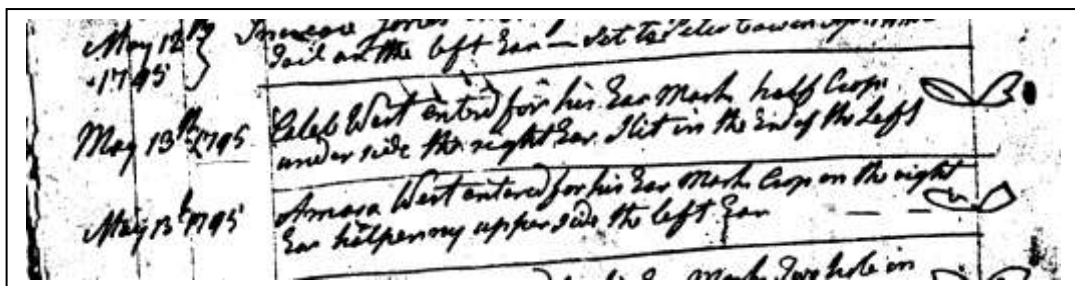 May 12th Increase Jones
1795 Tail on the left Ear — Set to Peter
May 13th 1795 Caleb West entred for his Ear Mark half Crop
under side the right Ear Slit in the End of the Left
May 13th 1795 Amasa West entered for his Ear Mark Crop on the right
Ear halpenny upper Side the left Ear
Ear Mark Two hole in